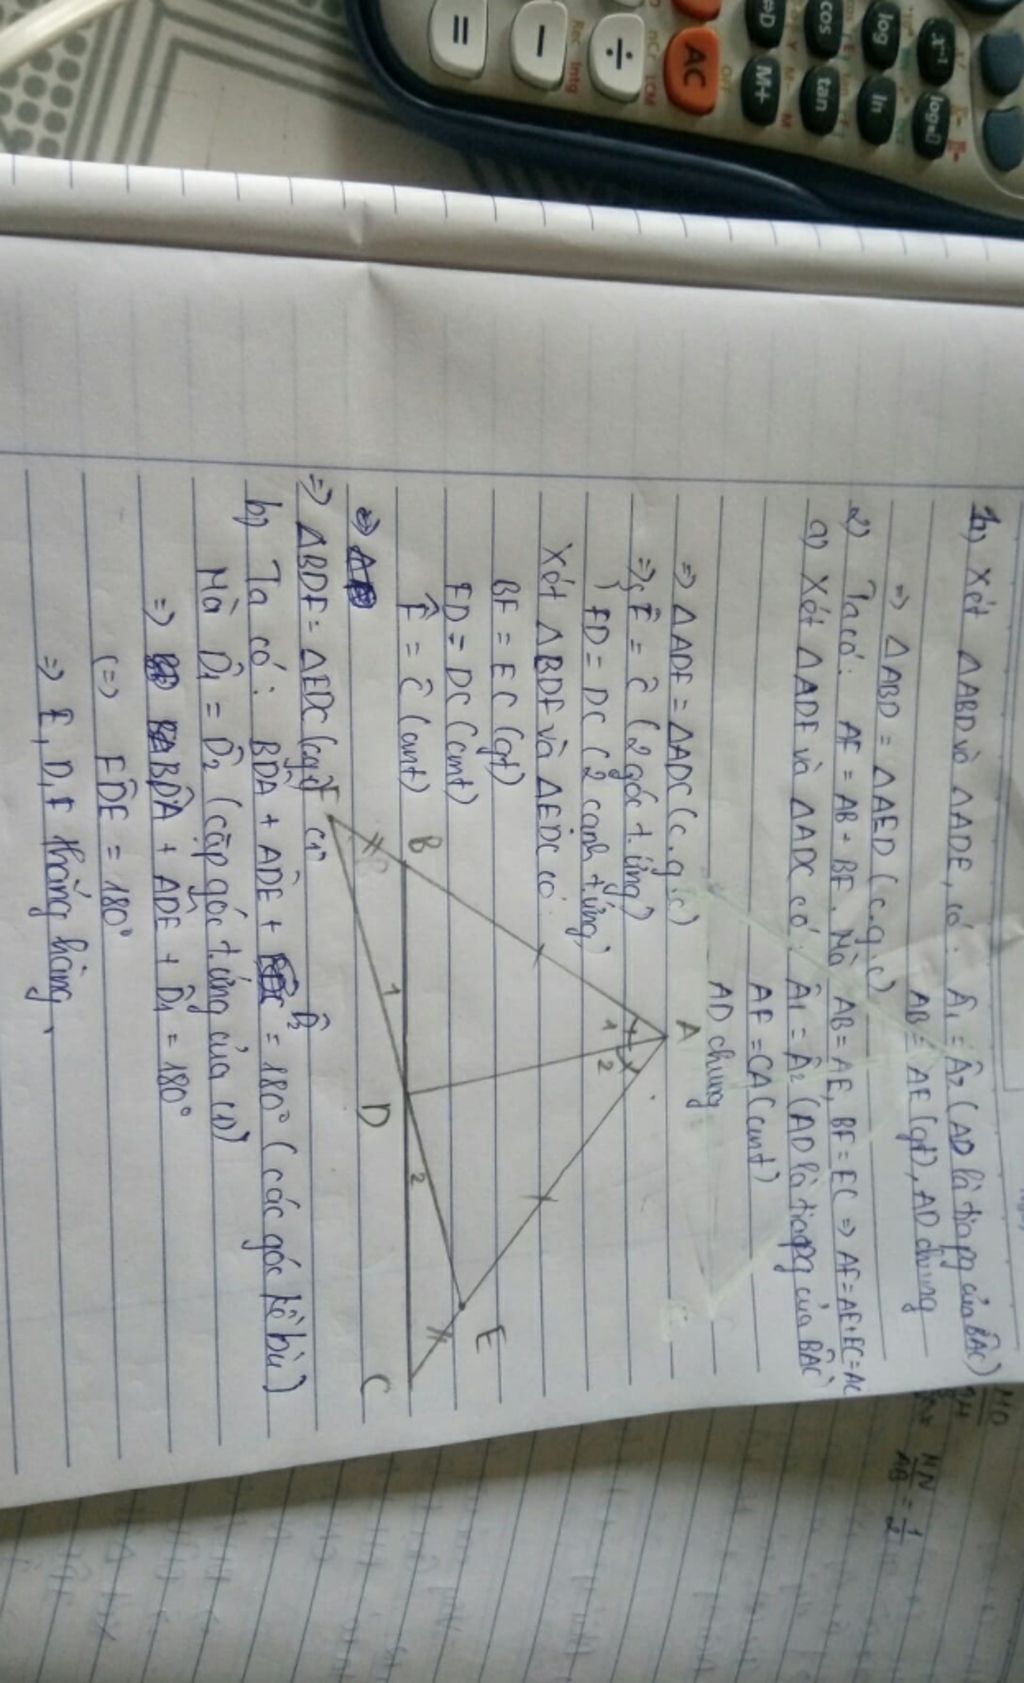 1a) Xét ΔABD và ΔADE, có: Â1 = Â2 (AD là tia pg của BÂC)
AB = AE (gt), AD chung
=> ΔABD = ΔAED (c.g.c)
2) Ta có: AF = AB + BF. Mà AB = AE, BF = EC => AF = AE + EC = AC
a) Xét ΔADF và ΔADC có: Â1 = Â2 (AD là tia pg của BÂC)
AF = CA (cmt)
AD chung
=> ΔADF = ΔADC (c.g.c)
=> { F̂ = Ĉ (2 góc t.ứng)
FD = DC (2 cạnh t.ứng)
Xét ΔBDF và ΔEDC có
BF = EC (gt)
FD = DC (cmt)
F̂ = Ĉ (cmt)
=> ΔBDF = ΔEDC (cgc)
A
1 2
B
F
1
D
2
E
C
b) Ta có: BD̂A + AD̂E + D̂2 = 180° (các góc kề bù)
Mà D̂1 = D̂2 (cặp góc t.ứng của câu a)
=> BD̂A + AD̂E + D̂1 = 180°
(=) FD̂E = 180°
=> E, D, F thẳng hàng.
MN
AB
= 1
2
=
−
÷
AC
M+
cos
tan
log
ln
x⁻¹
log
Rec
Intg
nCr
LCM